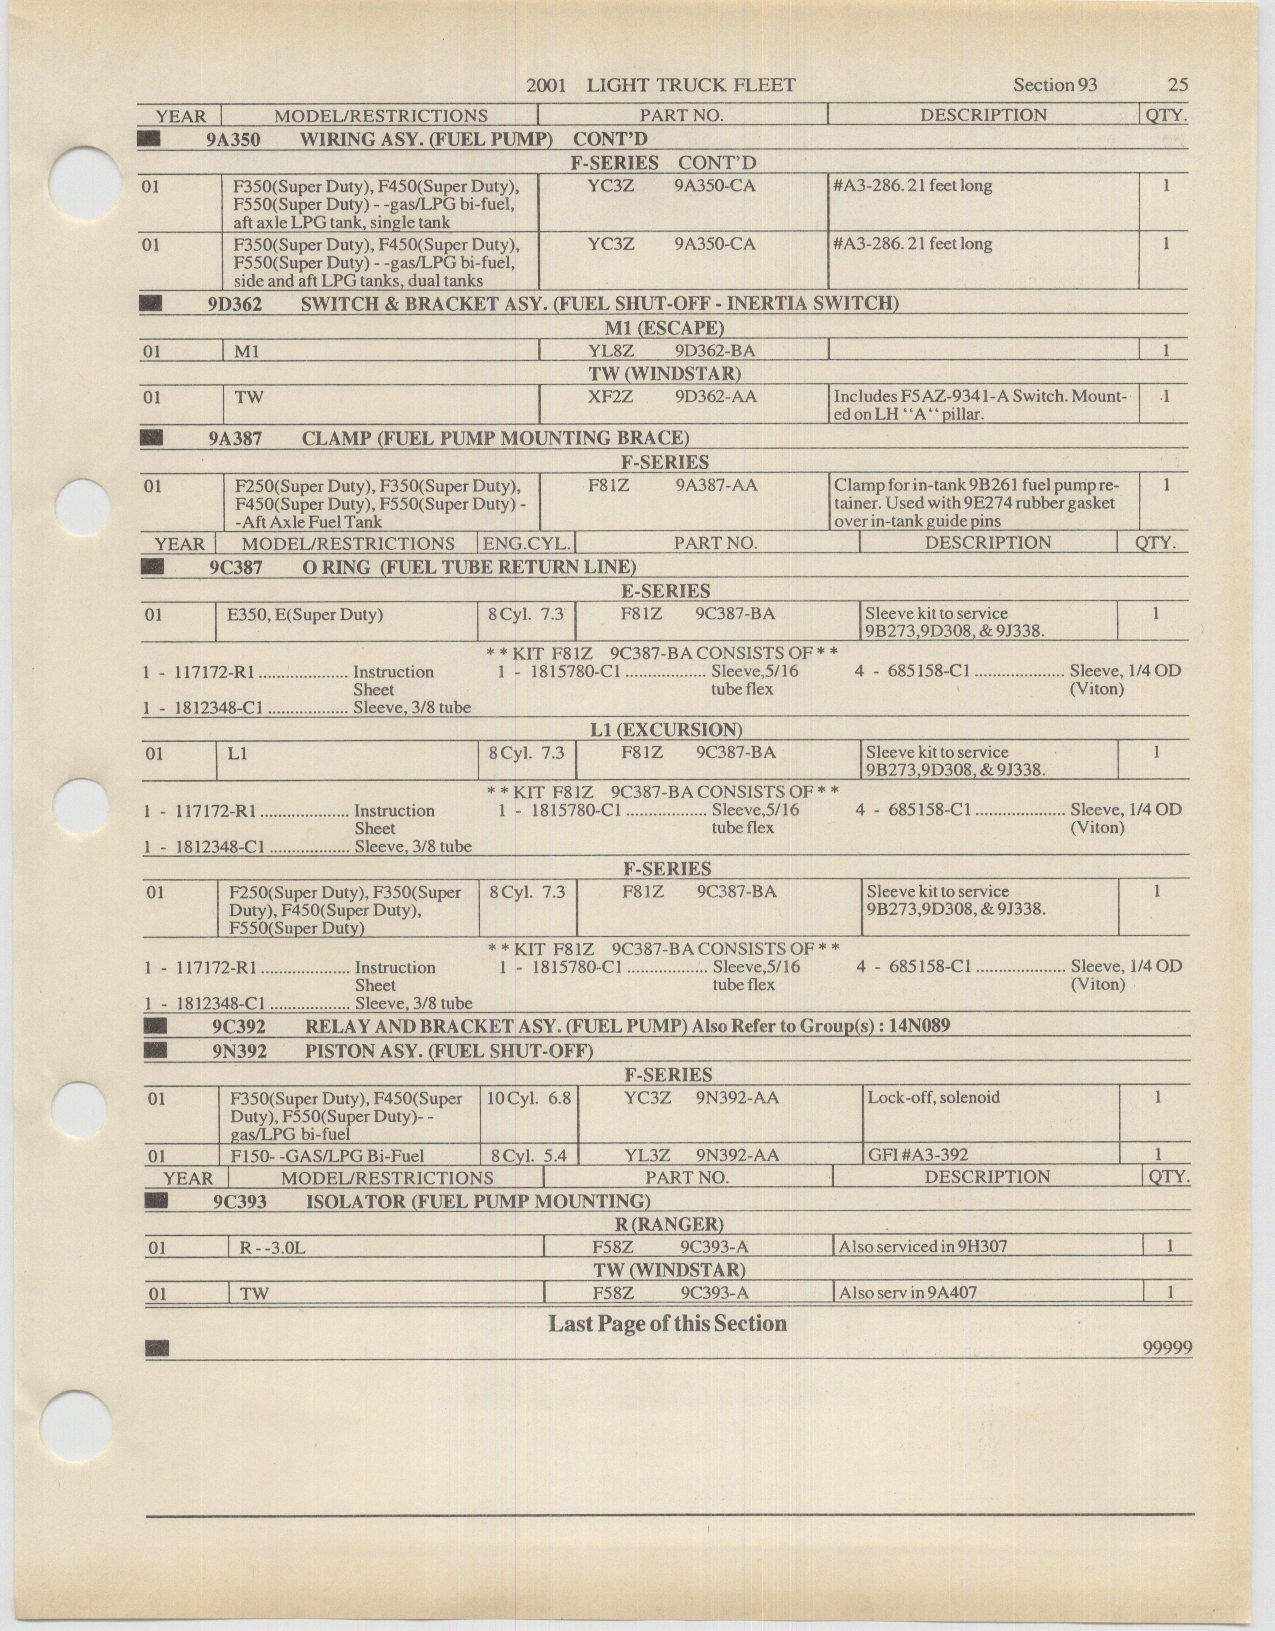 2001 LIGHT TRUCK FLEET Section 93 25
YEAR MODEL/RESTRICTIONS PART NO. DESCRIPTION QTY.
9A350 WIRING ASY. (FUEL PUMP) CONT'D
F-SERIES CONT'D
01 F350(Super Duty), F450(Super Duty), YC3Z 9A350-CA #A3-286. 21 feet long 1
F550(Super Duty) - -gas/LPG bi-fuel,
aft axle LPG tank, single tank
01 F350(Super Duty), F450(Super Duty), YC3Z 9A350-CA #A3-286. 21 feet long 1
F550(Super Duty) - -gas/LPG bi-fuel,
side and aft LPG tanks, dual tanks
9D362 SWITCH & BRACKET ASY. (FUEL SHUT-OFF - INERTIA SWITCH)
M1 (ESCAPE)
01 M1 YL8Z 9D362-BA 1
TW (WINDSTAR)
01 TW XF2Z 9D362-AA Includes F5AZ-9341-A Switch. Mount- 1
ed on LH "A" pillar.
9A387 CLAMP (FUEL PUMP MOUNTING BRACE)
F-SERIES
01 F250(Super Duty), F350(Super Duty), F81Z 9A387-AA Clamp for in-tank 9B261 fuel pump re- 1
F450(Super Duty), F550(Super Duty) - tainer. Used with 9E274 rubber gasket
-Aft Axle Fuel Tank over in-tank guide pins
YEAR MODEL/RESTRICTIONS ENG.CYL. PART NO. DESCRIPTION QTY.
9C387 O RING (FUEL TUBE RETURN LINE)
E-SERIES
01 E350, E(Super Duty) 8 Cyl. 7.3 F81Z 9C387-BA Sleeve kit to service 1
9B273,9D308, & 9J338.
* * KIT F81Z 9C387-BA CONSISTS OF * *
1 - 117172-R1 ................... Instruction 1 - 1815780-C1 ................. Sleeve,5/16 4 - 685158-C1 ................... Sleeve, 1/4 OD
Sheet tube flex (Viton)
1 - 1812348-C1 ................. Sleeve, 3/8 tube
L1 (EXCURSION)
01 L1 8 Cyl. 7.3 F81Z 9C387-BA Sleeve kit to service 1
9B273,9D308, & 9J338.
* * KIT F81Z 9C387-BA CONSISTS OF * *
1 - 117172-R1 ................... Instruction 1 - 1815780-C1 ................. Sleeve,5/16 4 - 685158-C1 ................... Sleeve, 1/4 OD
Sheet tube flex (Viton)
1 - 1812348-C1 ................. Sleeve, 3/8 tube
F-SERIES
01 F250(Super Duty), F350(Super 8 Cyl. 7.3 F81Z 9C387-BA Sleeve kit to service 1
Duty), F450(Super Duty), 9B273,9D308, & 9J338.
F550(Super Duty)
* * KIT F81Z 9C387-BA CONSISTS OF * *
1 - 117172-R1 ................... Instruction 1 - 1815780-C1 ................. Sleeve,5/16 4 - 685158-C1 ................... Sleeve, 1/4 OD
Sheet tube flex (Viton)
1 - 1812348-C1 ................. Sleeve, 3/8 tube
9C392 RELAY AND BRACKET ASY. (FUEL PUMP) Also Refer to Group(s) : 14N089
9N392 PISTON ASY. (FUEL SHUT-OFF)
F-SERIES
01 F350(Super Duty), F450(Super 10 Cyl. 6.8 YC3Z 9N392-AA Lock-off, solenoid 1
Duty), F550(Super Duty)- -
gas/LPG bi-fuel
01 F150- -GAS/LPG Bi-Fuel 8 Cyl. 5.4 YL3Z 9N392-AA GFI #A3-392 1
YEAR MODEL/RESTRICTIONS PART NO. DESCRIPTION QTY.
9C393 ISOLATOR (FUEL PUMP MOUNTING)
R (RANGER)
01 R - -3.0L F58Z 9C393-A Also serviced in 9H307 1
TW (WINDSTAR)
01 TW F58Z 9C393-A Also serv in 9A407 1
Last Page of this Section
99999